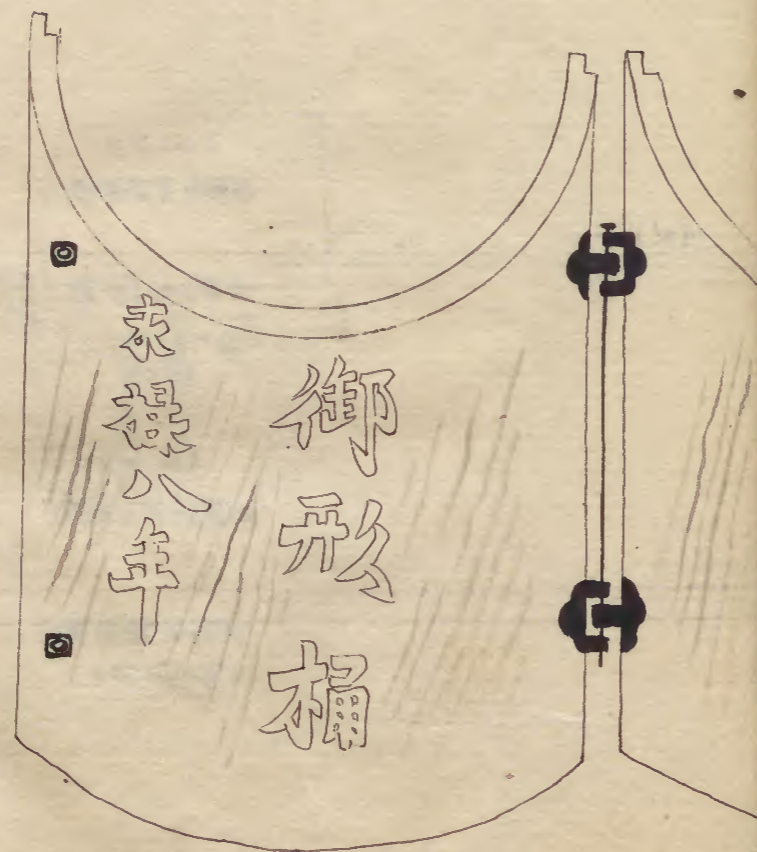 御形
永禄八年